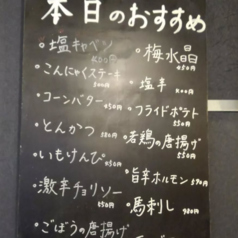 本日のおすすめ
・塩キャベツ
・こんにゃくステーキ
・コーンバター 450円
・とんかつ 580円
・いもけんぴ 450円
・激辛チョリソー 550円
・ごぼうの唐揚げ
・梅水晶 450円
・塩辛
・フライドポテト 550円
・若鶏の唐揚げ 550円
・旨辛ホルモン 590円
・馬刺し 980円